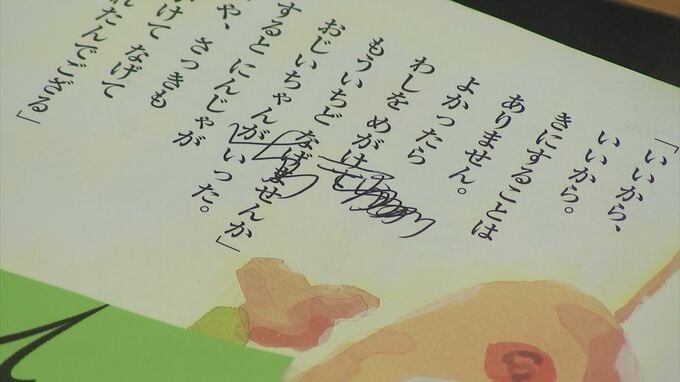 「いいから、
いいから。
きにすることは
ありません。
よかったら
わしを めがけて
もういちど なげませんか」
おじいちゃんが いった。
するとにんじゃが
や、 さっきも
けて なげて
れたんでござる」